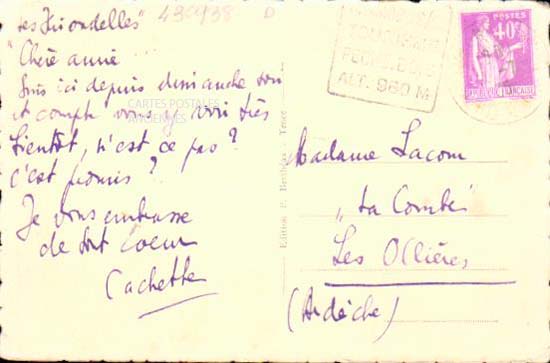 "Les Hirondelles"
436938 D
Chère amie
Suis ici depuis dimanche soir
et compte vous y voir très
bientôt, n'est ce pas ?
c'est promis ?
Je vous embrasse
de tout coeur
Cachette
CARTES POSTALES
ANCIENNES
TOURISME
ALT. 960 M
POSTES
40c
REPUBLIQUE FRANÇAISE
Edition
Madame Lacom
"La Combe"
Les Ollières
(Ardèche)